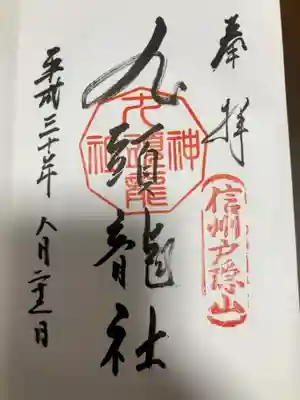 奉拝
信州戸隠山
九頭龍社
九頭龍神社
平成三十年八月